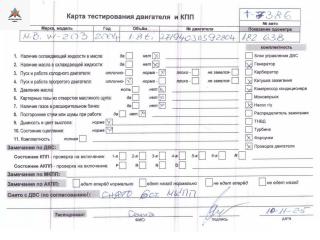 Карта тестирования двигателя и КПП
№ авто
Марка, модель Год Объём № двигателя Показания одометра
182 638
комплектность
1. Наличие охлаждающей жидкости в масле да нет
2. Наличие масла в охлаждающей жидкости да нет
3. Пуск и работа холодного двигателя отлично норма плохо не завелся
4. Пуск и работа прогретого двигателя отлично норма плохо не завелся
5. Давление масла норма нет
6. Картерные газы из отверстия масляного щупа да нет
7. Наличие газов в расширительном бачке да нет
8. Посторонние стуки или шумы при работе да нет
9. Дымность и цвет выхлопа норма
10. Состояние сцепления норма
11. Комплектность полный
Блок управления ДВС
Генератор
Карбюратор
Катушка зажигания
Компрессор кондиционера
Моновпрыск
Насос г/у
Распределитель зажигания
ТНВД
Турбина
Форсунки
Проводка двигателя
Замечания по ДВС:
Состояние КПП - проверка на включение: 1-я 2-я 3-я 4-я 5-я R
Состояние АКПП - проверка на включение: P R N D
Замечания по МКПП:
Замечания по АКПП: едет вперёд нормально едет назад нормально не едет вперёд не едет назад
Снято с ДВС (по согласованию): СНЯТО
Тестировал
ФИО подпись дата
10-11-25